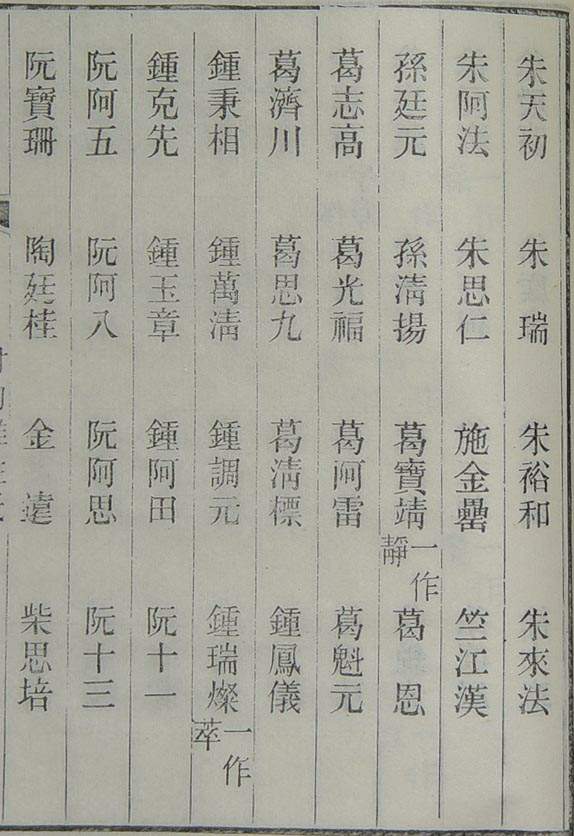 朱天初 朱瑞 朱裕和 朱來法
朱阿法 朱思仁 施金罍 竺江漢
孫廷元 孫清揚 葛寶靖一作靜 葛恩
葛志高 葛光福 葛阿雷 葛魁元
葛濟川 葛思九 葛清標 鍾鳳儀
鍾秉相 鍾萬清 鍾調元 鍾瑞燦一作萃
鍾克先 鍾玉章 鍾阿田 阮十一
阮阿五 阮阿八 阮阿思 阮十三
阮寶珊 陶廷桂 金遠 柴思培